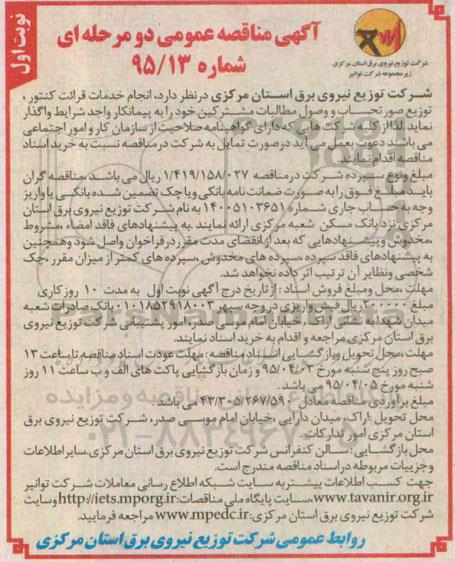 نوبت اول
آگهی مناقصه عمومی دو مرحله ای
شماره ۹۵/۱۳
شرکت توزیع نیروی برق استان مرکزی
زیر مجموعه شرکت توانیر
شرکت توزیع نیروی برق استان مرکزی در نظر دارد، انجام خدمات قرائت کنتور،
توزیع صورتحساب و وصول مطالبات مشترکین خود را به پیمانکار واجد شرایط واگذار
نماید لذا از کلیه شرکت هایی که دارای گواهینامه صلاحیت از سازمان کار و امور اجتماعی
می باشند دعوت بعمل می آید در صورت تمایل به شرکت در مناقصه نسبت به خرید اسناد
مناقصه اقدام نمایند.
مبلغ ونوع سپرده شرکت در مناقصه ۱/۴۱۹/۱۵۸/۰۲۷ ریال می باشد، مناقصه گران
باید مبلغ فوق را به صورت ضمانت نامه بانکی و یا چک تضمین شده بانکی یا واریز
وجه به حساب جاری شماره ۱۴۰۰۵۱۰۳۶۵۱ به نام شرکت توزیع نیروی برق استان
مرکزی نزد بانک مسکن شعبه مرکزی ارائه نمایند. به پیشنهادهای فاقد امضاء، مشروط
،مخدوش و پیشنهادهایی که بعد از انقضای مدت مقرر در فراخوان واصل شود وهمچنین
به پیشنهادهای فاقد سپرده، سپرده های مخدوش، سپرده های کمتر از میزان مقرر، چک
شخصی ونظایر آن ترتیب اثر داده نخواهد شد.
مهلت، محل ومبلغ فروش اسناد: از تاریخ درج آگهی نوبت اول به مدت ۱۰ روز کاری
مبلغ ۲۰۰۰۰۰ ریال فیش واریزی در وجه سپهر ۰۱۰۱۸۵۲۹۱۸۰۰۳ بانک صادرات شعبه
میدان شهدا به نشانی اراک، خیابان امام موسی صدر، امور پشتیبانی شرکت توزیع نیروی
برق استان مرکزی مراجعه و اقدام به خرید اسناد نمایند.
مهلت، محل تحویل وبازگشایی اسناد مناقصه: مهلت عودت اسناد مناقصه تا ساعت ۱۳
صبح روز پنج شنبه مورخ ۹۵/۰۴/۰۳ و زمان بازگشایی پاکت های الف و ب ساعت ۱۱ روز
شنبه مورخ ۹۵/۰۴/۰۵ می باشد.
مبلغ برآوردی مناقصه معادل ۴۳/۳۰۵/۲۶۷/۵۹۰ می باشد.
محل تحویل: اراک، میدان دارایی، خیابان امام موسی صدر، شرکت توزیع نیروی برق
استان مرکزی امور تدارکات.
محل بازگشایی: سالن کنفرانس شرکت توزیع نیروی برق استان مرکزی، سایر اطلاعات
وجزییات مربوطه در اسناد مناقصه مندرج است.
جهت کسب اطلاعات بیشتر به سایت شبکه اطلاع رسانی معاملات شرکت توانیر
www.tavanir.org.ir، سایت پایگاه ملی مناقصات: http://iets.mporg.ir وسایت
شرکت توزیع نیروی برق استان مرکزی: www.mpedc.ir مراجعه فرمایید.
روابط عمومی شرکت توزیع نیروی برق استان مرکزی